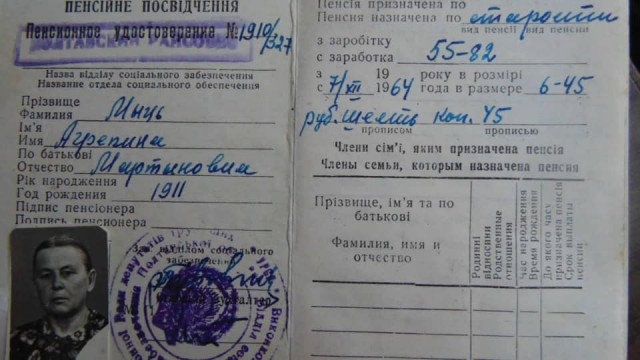 ПЕНСІЙНЕ ПОСВІДЧЕННЯ
Пенсионное удостоверение № 1910/327
ПОЛТАВСКИЙ РАЙСОБЕС
Назва відділу соціального забезпечення
Название отдела социального обеспечения
Прізвище
Фамилия Минь
Ім'я
Имя Агрепина
По батькові
Отчество Мартыновна
Рік народження
Год рождения 1911
Підпис пенсіонера
Подпись пенсионера
Пенсія призначена по
Пенсия назначена по старости
вид пенсії вид пенсии
з заробітку
с заработка 55-82
з 19 року в розмірі
с 7/XII 1964 года в размере 6-45
руб. шесть коп. 45
прописом прописью
Члени сім'ї, яким призначена пенсія
Члены семьи, которым назначена пенсия
Прізвище, ім'я та по батькові
Фамилия, имя и отчество
Родинні відносини
Родственные отношения
Час народження
Время рождения
До якого часу призначена пенсія
Срок выплаты пенсии